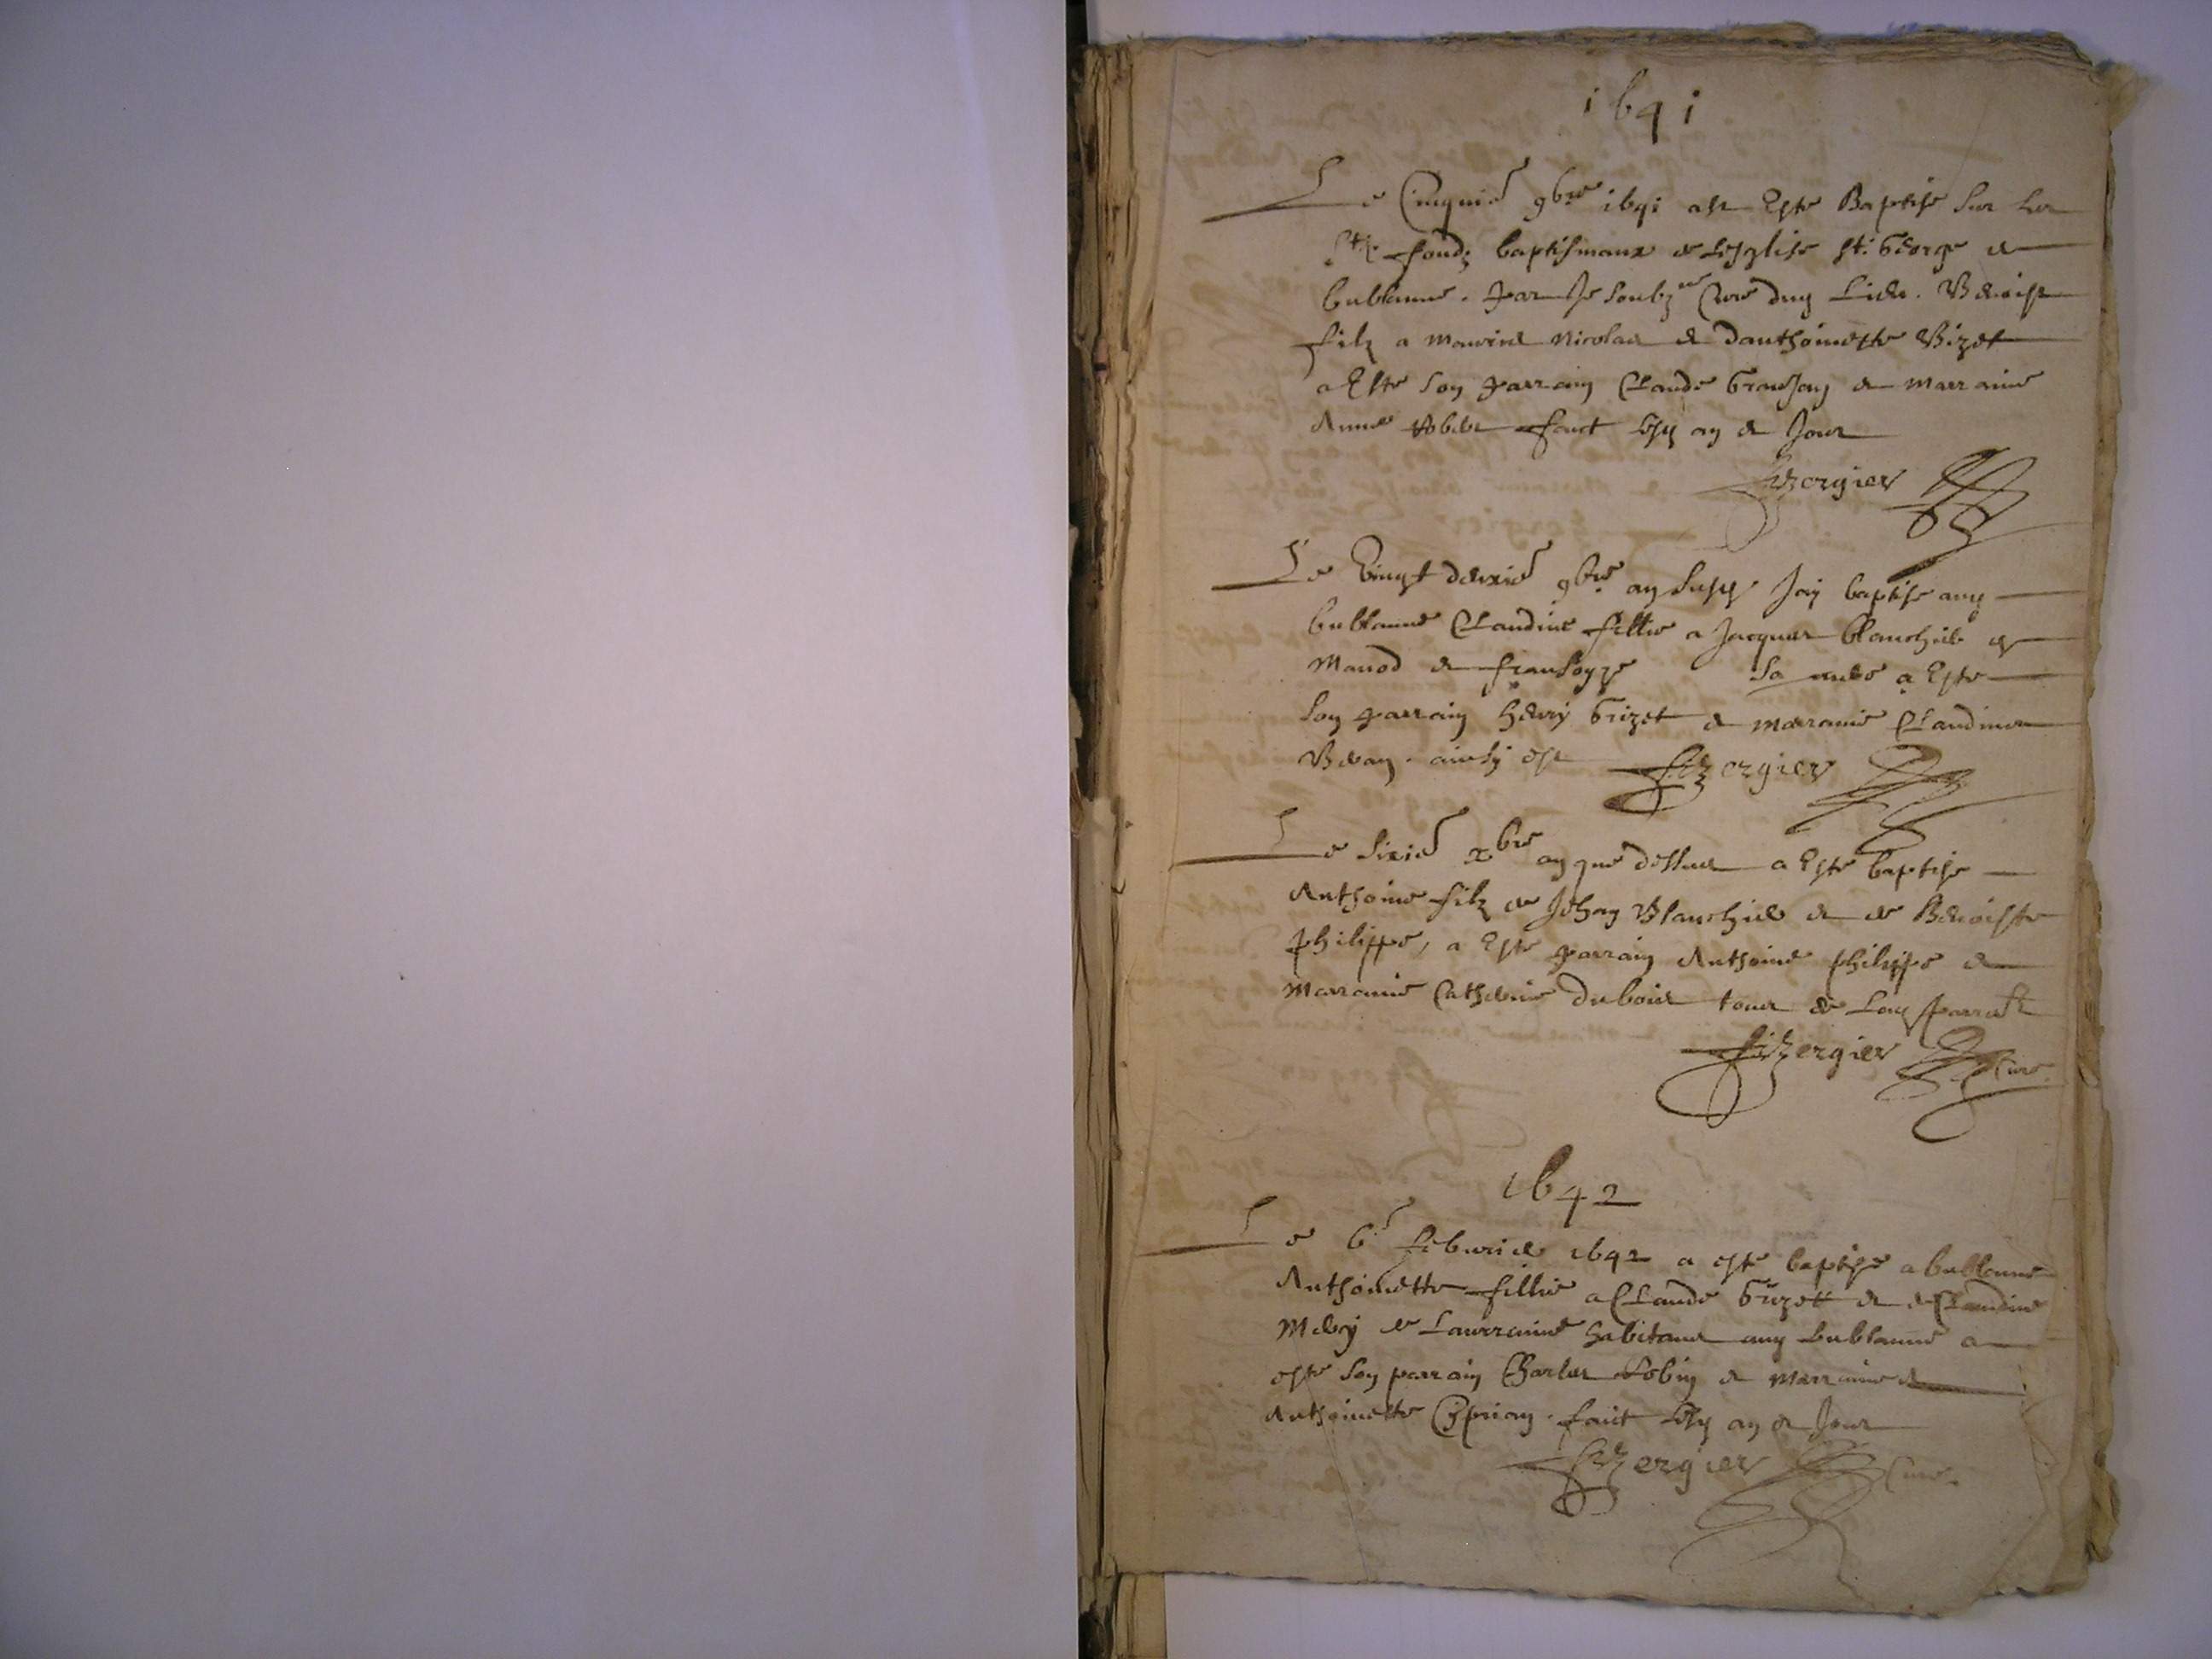 1641
Le Cinquie 9bre 1641 ast Este Baptise sur les
Sts fondz baptismaux de Lesglise st. George de
bublanne. par Je soubzne Cure dug Lieu. Benoist
filz a Maurice Nicolas & danthoinette Bizet
a Este son parrain Claude & marraine
Anne faict lesq an & Jour
Bergier
Le Vingt deuxie 9bre an susq Jay baptise aug
bublanne Claudine fillie a Jacques blanchet de
& fransoyze sa a Este
son parrain henry Grizet & marraine Claudine
ainsy est Bergier
Le sixie xbre an que dessus a Este baptise
Anthoine filz de Jehan Blanchet & de Benoiste
philippe, a Este parrain Anthoine philippe &
marraine Catherine dubois tous de Laq parroisse
Bergier Cure
1642
Le 6e feburier 1642 a este baptise a bublanne
Anthoinette fillie a Claude Grizet & de Claudine
de Lawrraine habitans aug bublanne a
este son parrain Charles & marraine
Anthoinette Cyprian. faict lesq an & Jour
Bergier Cure.